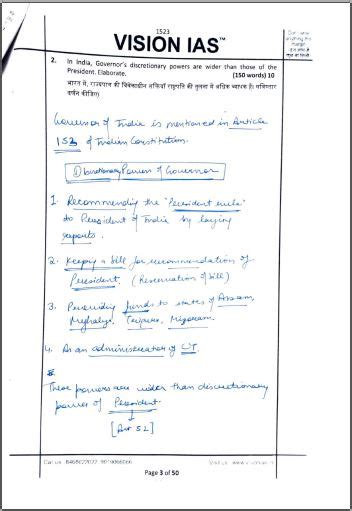 1523
VISION IAS™
Don't write
anything this
margin
2. In India, Governor's discretionary powers are wider than those of the
President. Elaborate. (150 words) 10
भारत में, राज्यपाल की विवेकाधीन शक्तियाँ राष्ट्रपति की तुलना में अधिक व्यापक हैं। सविस्तार
वर्णन कीजिए।
Governor of India is mentioned in Article
153 of Indian Constitution.
① Discretionary Powers of Governor
1. Recommending the "President rule"
to President of India by laying
reports.
2. Keeping a bill for recommendation of
President. (Reservation of bill)
3. Providing funds to states of Assam,
Meghalya, Tripura, Mizoram.
4. As an administrator of UT.
These powers are wider than discretionary
power of President.
[Art 52]
Call us : 8468022022, 9019066066
Visit us : www.visionias.in
Page 3 of 50